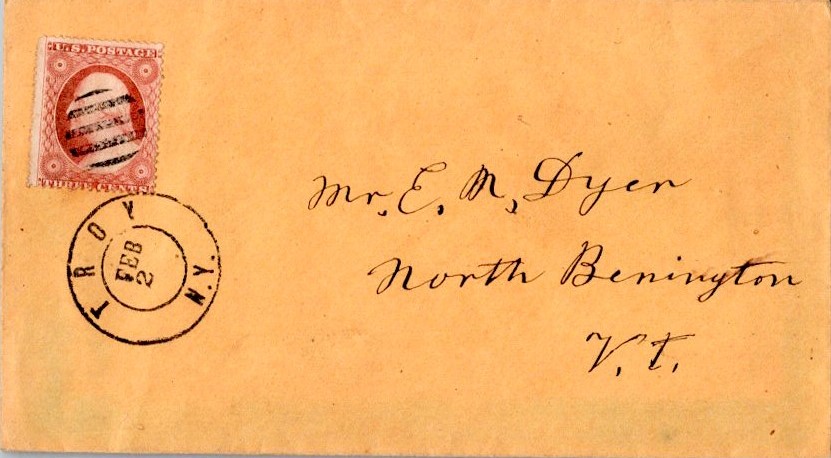 U.S. POSTAGE
THREE CENTS
TROY
N.Y.
FEB
2
Mr. E. N. Dyer
North Benington
V.T.